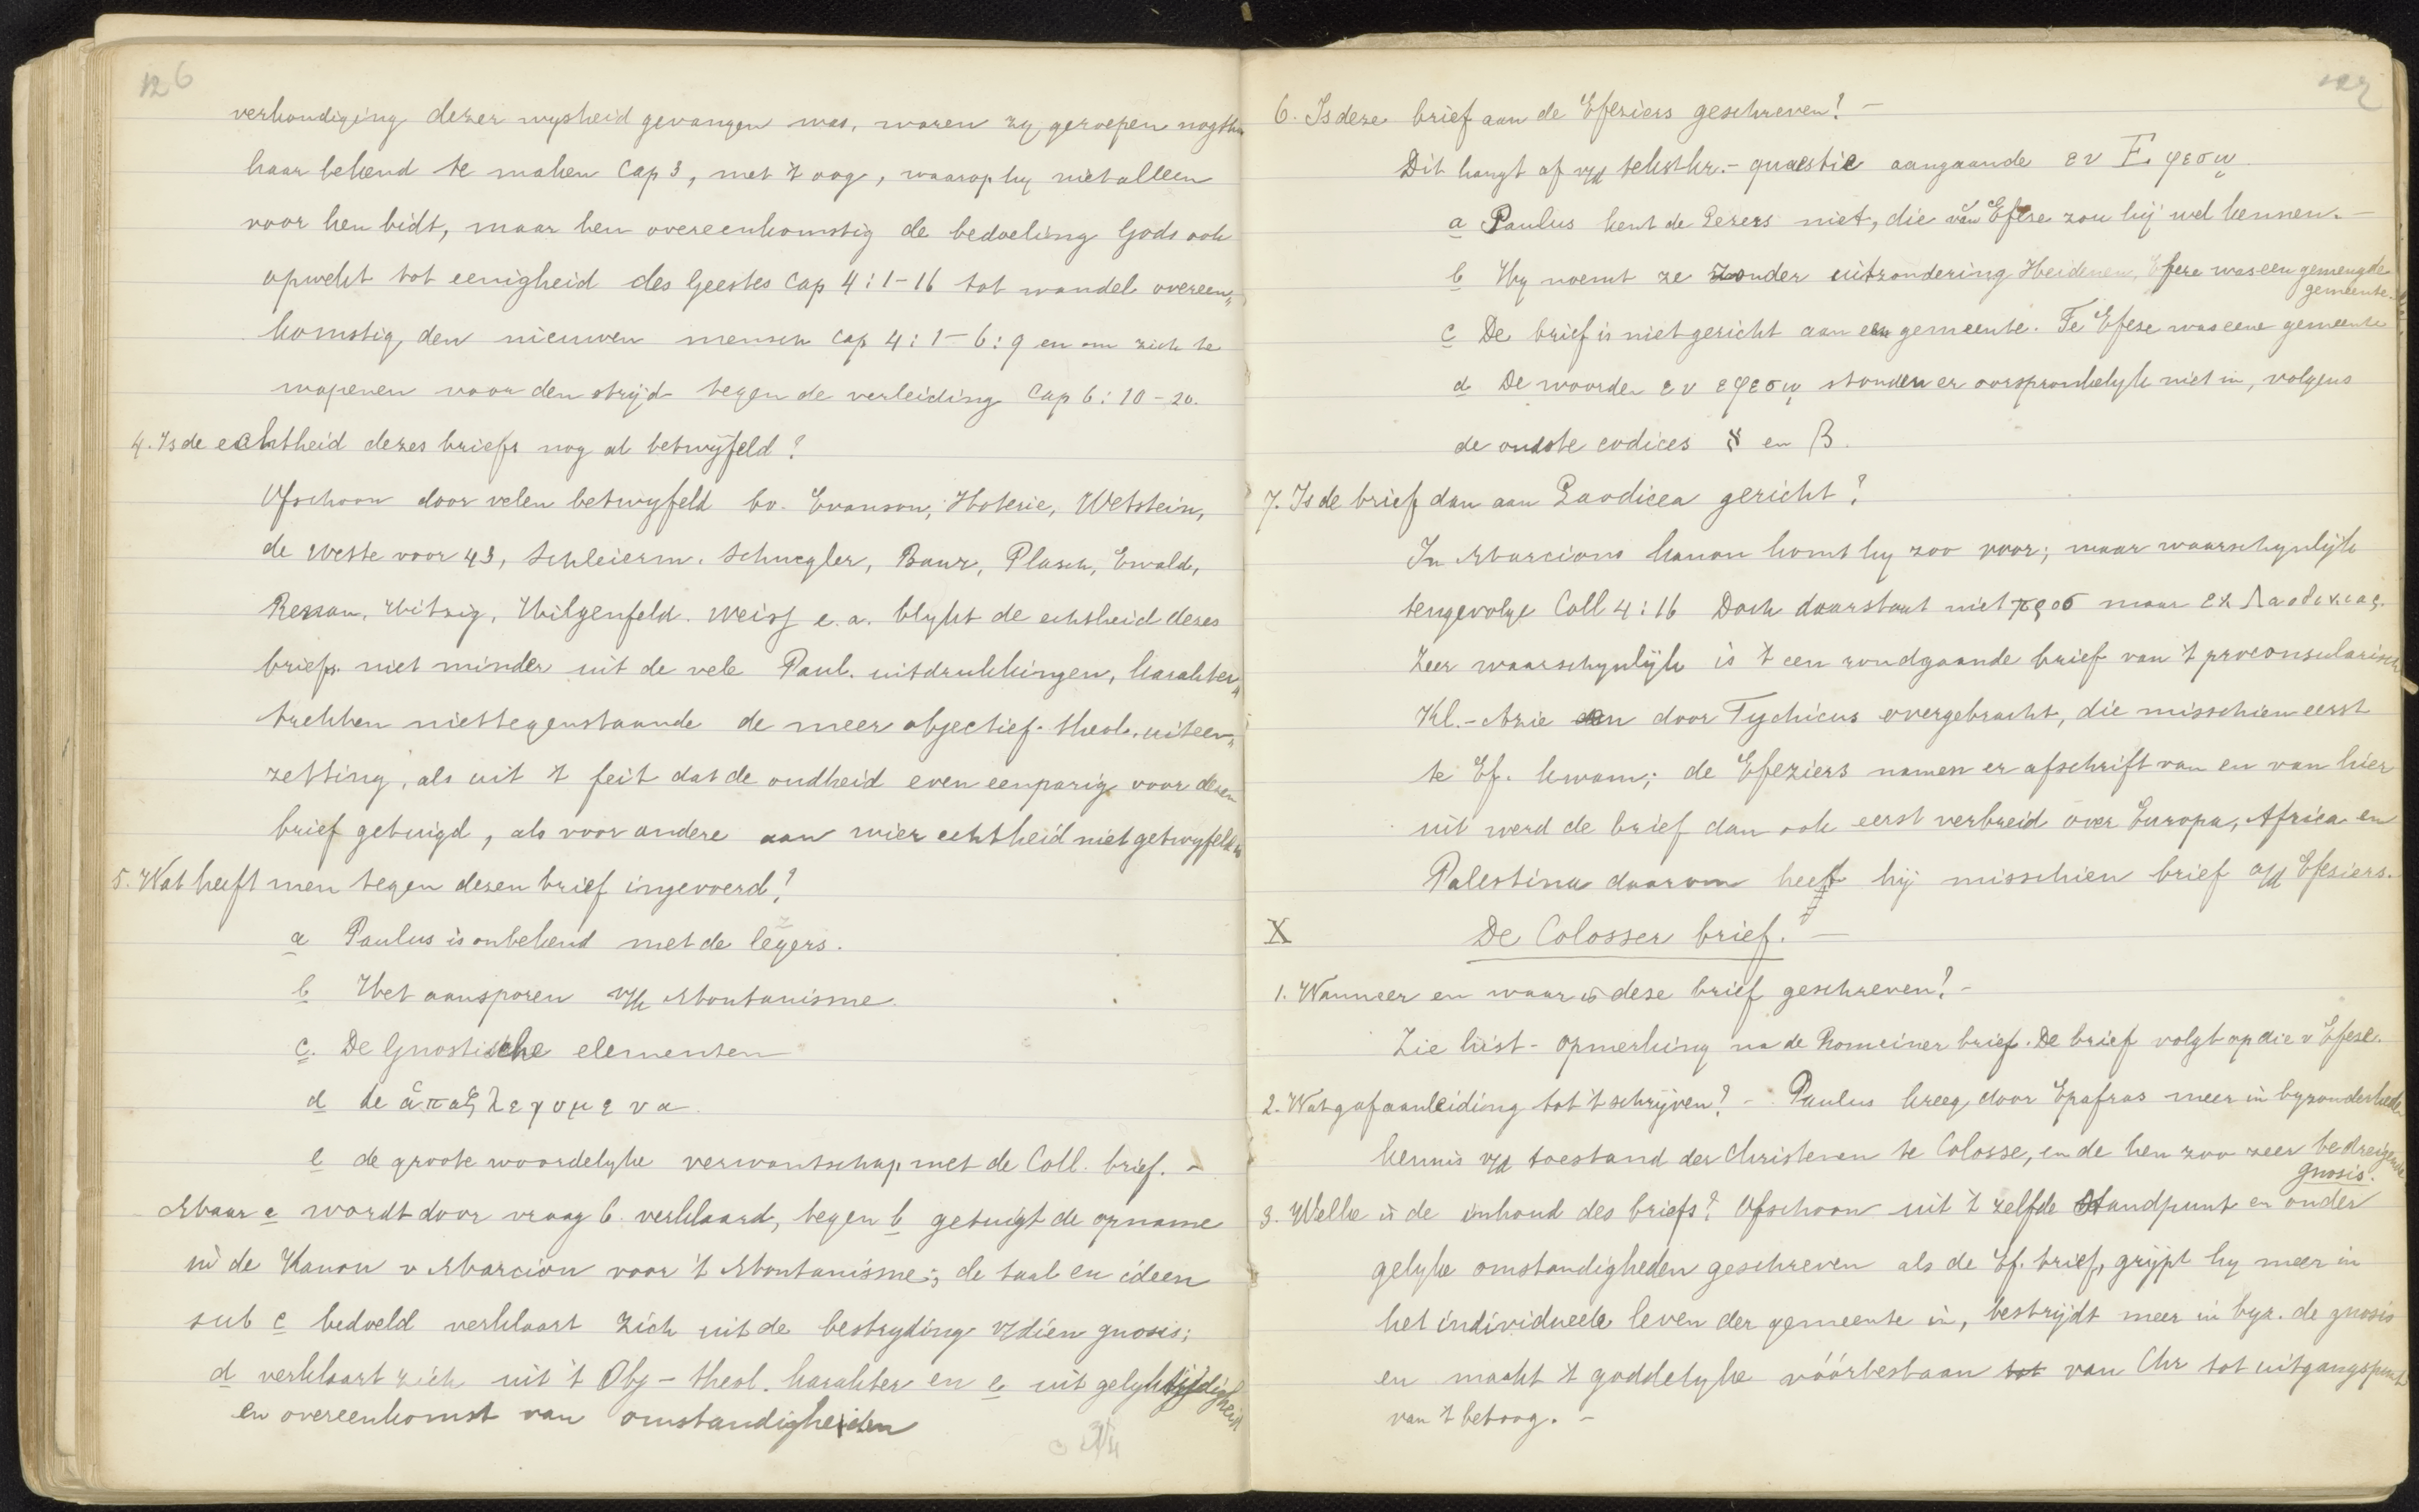 126
verkondiging dezer wysheid gevangen was, waren zy geroepen nogthans
haar bekend te maken Cap 3, met 't oog, waarop hy niet alleen
voor hen bidt, maar hen overeenkomstig de bedoeling Gods ook
opwekt tot eenigheid des Geestes Cap 4:1-16 tot wandel overeen„
komstig den nieuwen mensch Cap 4:1-6:9 en om zich te
wapenen voor den strijd tegen de verleiding Cap 6:10-20.
4. Is de echtheid dezes briefs nog al betwyfeld?
Ofschoon door velen betwyfeld bv. Evanson, Hoterie, Wetstein,
de Wette voor 43, Schleierm. Schwegler, Baur, Plasch, Ewald,
Renan, Hitzig, Hilgenfeld. Weisz e.a. blykt de echtheid dezes
briefs niet minder uit de vele Paul. uitdrukkingen, karakter„
trekken niettegenstaande de meer objectief-theol. uiteen„
zetting, als uit 't feit dat de oudheid even eenparig voor dezen
brief getuigd, als voor andere aan wier echtheid niet getwyfeld is
5. Wat heeft men tegen dezen brief ingevoerd?
a Paulus is onbekend met de lezers.
b Het aansporen v/h Montanisme
c. De Gnostische elementen
d de ἁπαξ λεγομενα.
e de groote woordelyke verwantschap met de Coll. brief. -
Maar a wordt door vraag 6. verklaard, tegen b getuigt de opname
in de Kanon v Marcion voor 't Montanisme; de taal en ideen
sub c bedoeld verklaart zich uit de bestryding v/dien gnosis;
d verklaart zich uit 't Obj-theol. karakter en e uit gelyktijdigheid
en overeenkomst van omstandigheden
6. Is deze brief aan de Efeziers geschreven? -
Dit hangt af v/d tekstkr.-quaestie aangaande εν Εφεσῳ.
a Paulus kent de Lezers niet, die van Efese zou hij wel kennen. -
b Hy noemt ze zonder uitzondering Heidenen, Efeze was een gemengde
gemeente.
c De brief is niet gericht aan een gemeente. Te Efese was eene gemeente
d De woorden εν εφεσῳ stonden er oorspronkelyk niet in, volgens
de oudste codices א en B.
7. Is de brief dan aan Laodicea gericht?
In Marcions kanon komt hy zoo voor; maar waarschynlijk
tengevolge Coll 4:16 Doch daar staat niet προσ maar εκ Λαοδικιας.
Zeer waarschynlijk is 't een rondgaande brief van 't proconsularisch
Kl.-Azie en door Tychicus overgebracht, die misschien eerst
te Ef. kwam; de Efeziers namen er afschrift van en van hier
uit werd de brief dan ook eerst verbreid over Europa, Africa en
Palestina daarom heeft hij misschien brief a/d Efesiers.
X De Colosser brief. -
1. Wanneer en waar is deze brief geschreven? -
Zie hist-opmerking na de Romeiner brief. De brief volgt op die v Efese.
2. Wat gaf aanleiding tot 't schrijven? - Paulus kreeg door Epafras meer in byzonderheden
kennis v/d toestand der Christenen te Colosse, en de hen zoo zeer bedreigende
gnosis.
3. Welke is de inhoud des briefs? Ofschoon uit 't zelfde standpunt en onder
gelyke omstandigheden geschreven als de Ef. brief, grijpt hy meer in
het individueele leven der gemeente in, bestrijdt meer in byz. de gnosis
en maakt 't goddelyke vóórbestaan tot van Chr tot uitgangspunt
van 't betoog. -